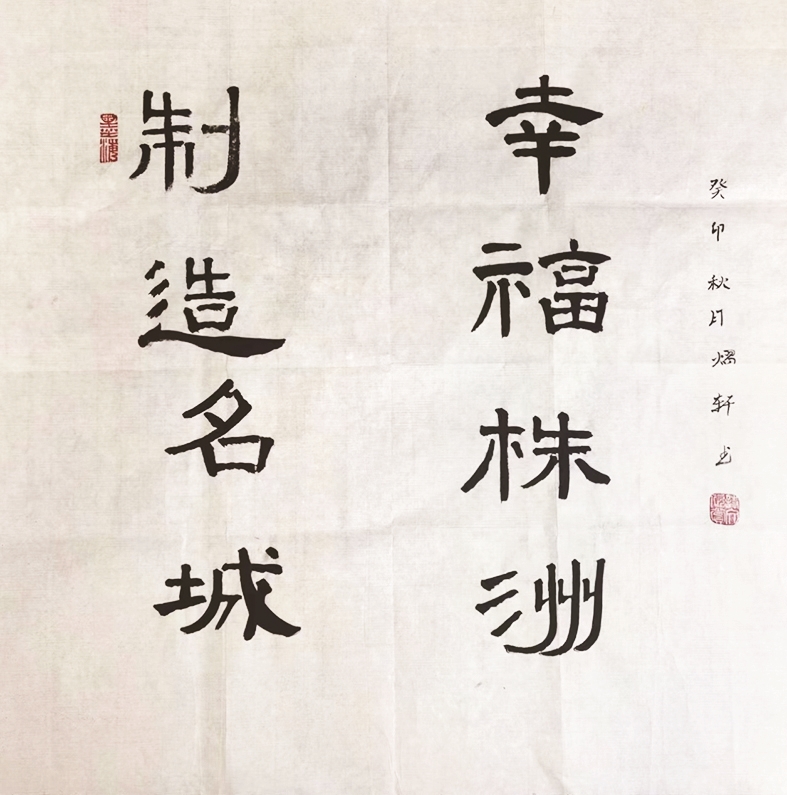 幸福株洲
制造名城
癸卯秋月熠轩书